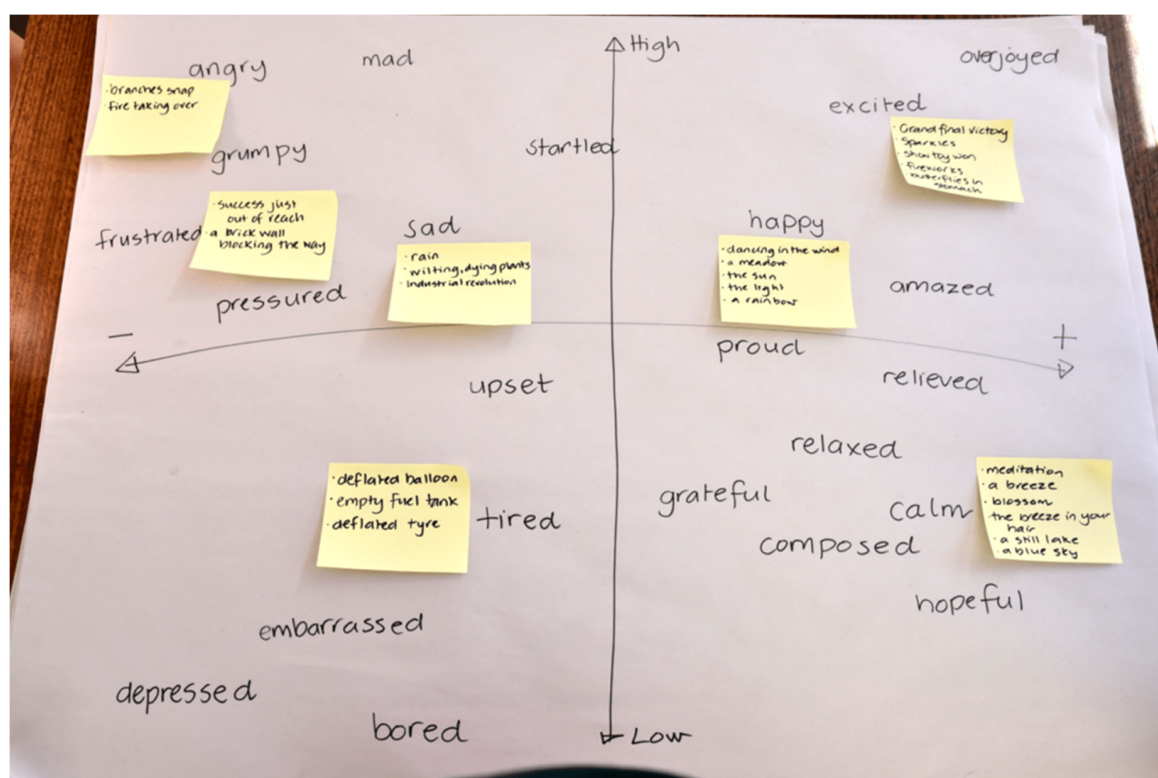 High
angry
mad
overjoyed
· branches snap
· fire taking over
excited
· Grand final victory
· Sparkles
· fireworks
butterflies in
stomach
startled
grumpy
· success just
out of reach
· a brick wall
blocking the way
frustrated
sad
· rain
· wilting, dying plants
· industrial revolution
happy
· dancing in the wind
· a meadow
· the sun
· the light
· a rainbow
amazed
pressured
−
+
proud
upset
relieved
relaxed
· deflated balloon
· empty fuel tank
· deflated tyre
tired
grateful
calm
· meditation
· a breeze
· blossom
· the breeze in your
hair
· a still lake
· a blue sky
composed
hopeful
embarrassed
depressed
bored
Low